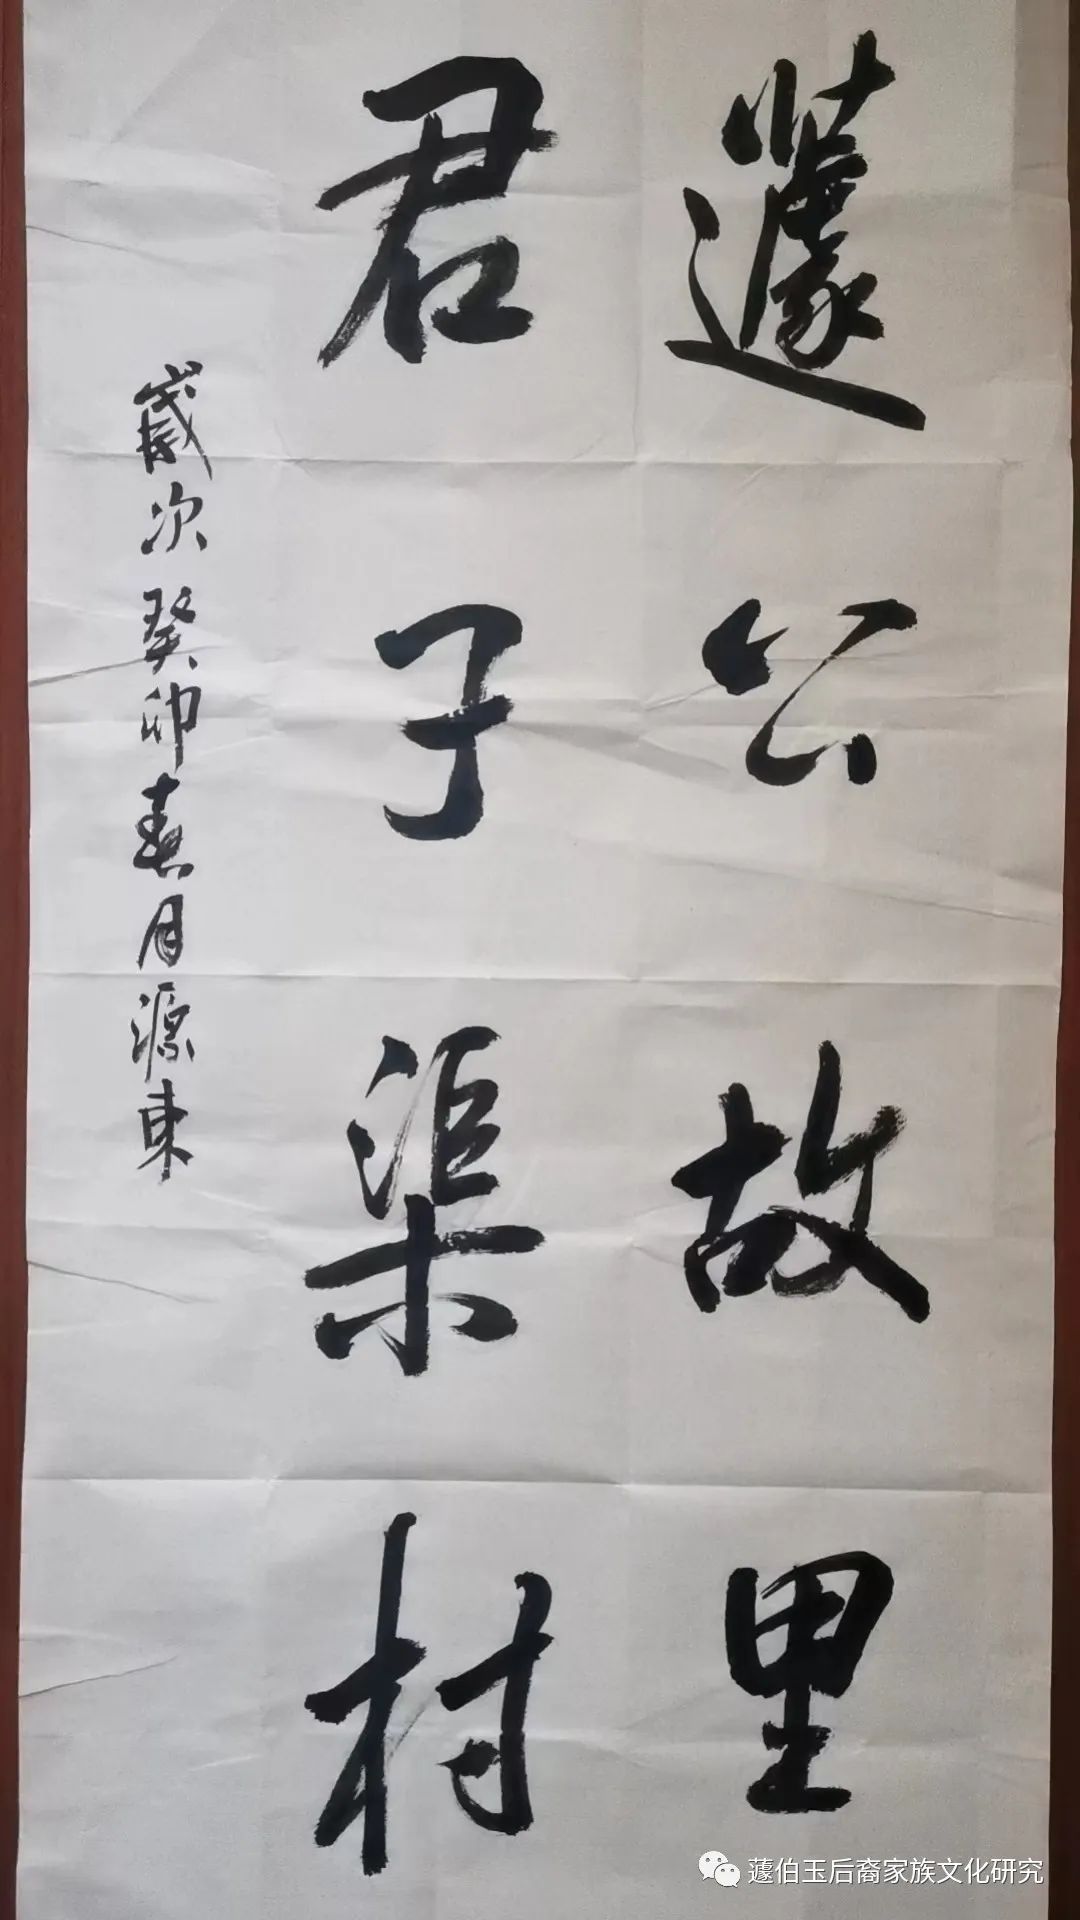 蘧公故里
君子渠村
歲次癸卯春月源東
蘧伯玉后裔家族文化研究